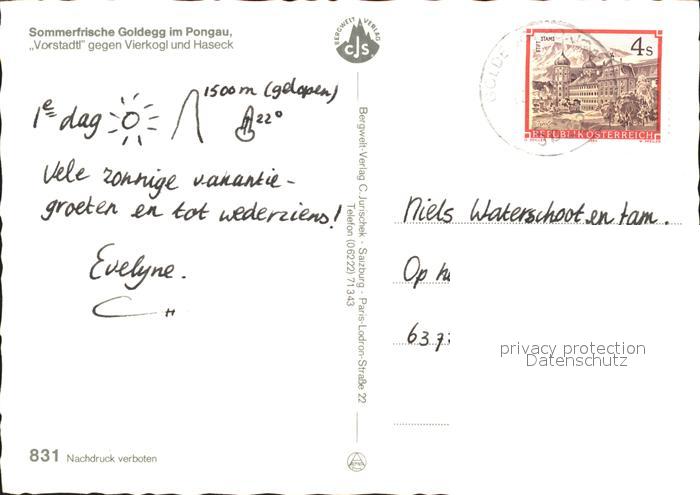 Sommerfrische Goldegg im Pongau,
„Vorstadtl" gegen Vierkogl und Haseck
BERGWELT VERLAG
CJS
1e dag 1500m (gelopen)
22°
Vele zonnige vakantie-
groeten en tot wederziens!
Evelyne.
Bergwelt-Verlag C. Jurischek · Salzburg · Paris-Lodron-Straße 22
Telefon (06222) 71343
STIFT STAMS
4s
REPUBLIK ÖSTERREICH
Niels Waterschoot en fam.
Op
privacy protection
Datenschutz
831 Nachdruck verboten